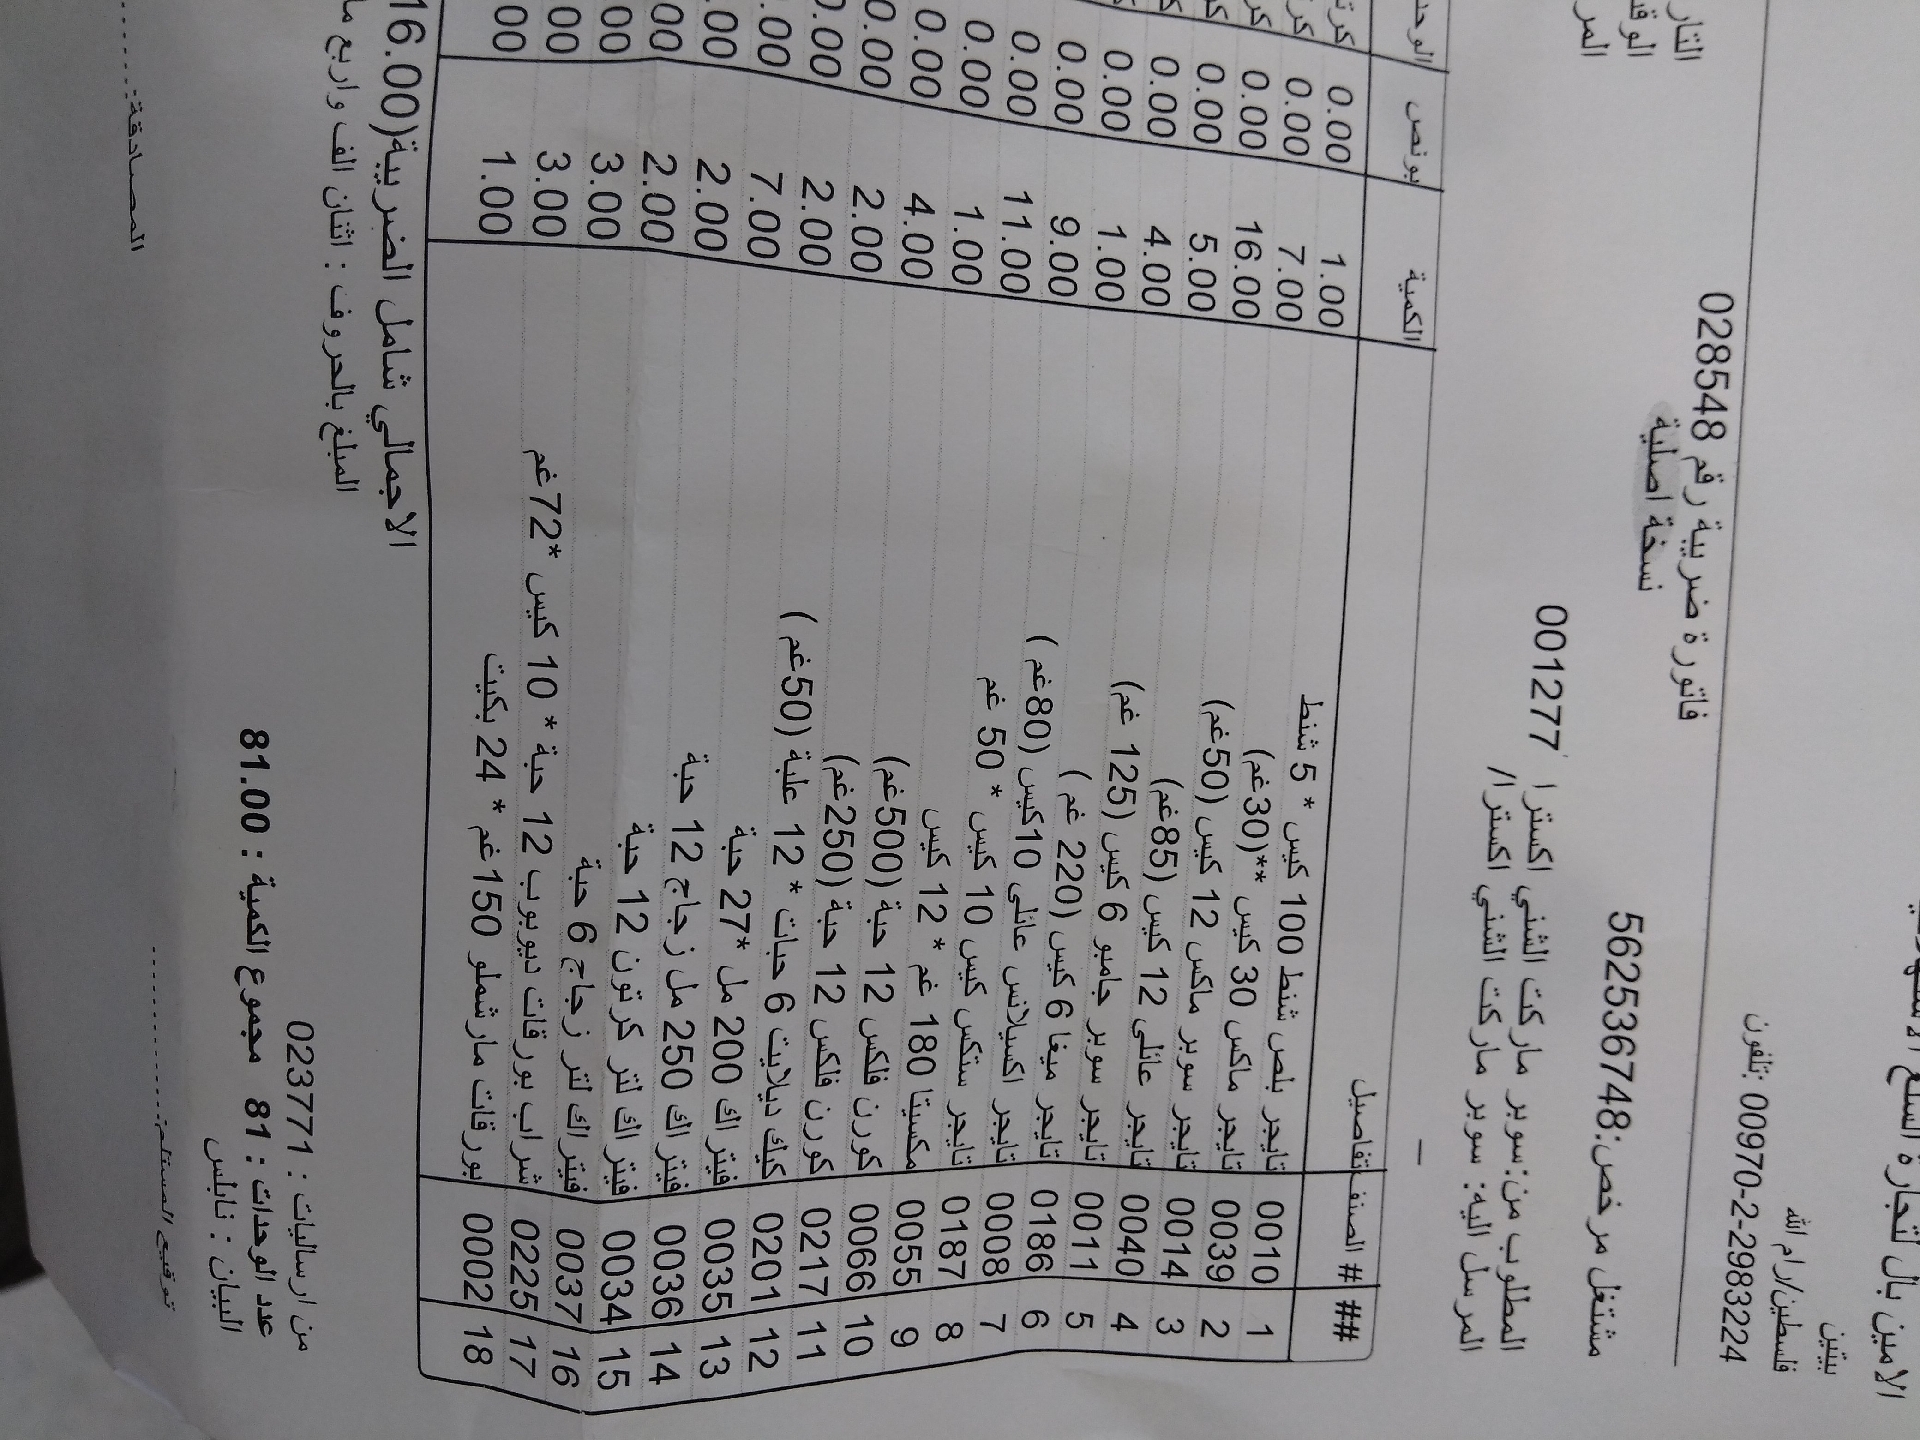 الامين بال لتجارة السلع الاستهلاكية
بيتين
فلسطين/رام الله
00970-2-2983224 :تلفون
فاتورة ضريبية رقم 0285548
نسخة اصلية
مشتغل مرخص:562536748
المطلوب من:سوبر ماركت الشني اكسترا 001277
المرسل اليه: سوبر ماركت الشني اكسترا/
## # الصنف تفاصيل الكمية بونص
1 0010 تايجر بلص شنط 100 كيس * 5 شنط 1.00 0.00
2 0039 تايجر ماكس 30 كيس **(30غم) 7.00 0.00
3 0014 تايجر سوبر ماكس 12 كيس (50غم) 16.00 0.00
4 0040 تايجر عائلي 12 كيس (85غم) 5.00 0.00
5 0011 تايجر سوبر جامبو 6 كيس (125 غم) 4.00 0.00
6 0186 تايجر ميغا 6 كيس (220 غم) 1.00 0.00
7 0008 تايجر اكسيلانس عائلي 10كيس (80غم) 9.00 0.00
8 0187 تايجر ستكس كيس 10 كيس * 50 غم 11.00 0.00
9 0055 مكسيتا 180 غم * 12 كيس 1.00 0.00
10 0066 كورن فلكس 12 حبة (500غم) 4.00 0.00
11 0217 كورن فلكس 12 حبة (250غم) 2.00
12 0201 كيك ديلايت 6 حبات * 12 علبة (50غم) 2.00
13 0035 فيتراك 200 مل *27 حبة 7.00
14 0036 فيتراك 250 مل زجاج 12 حبة 2.00
15 0034 فيتراك لتر كرتون 12 حبة 2.00
16 0037 فيتراك لتر زجاج 6 حبة 3.00
17 0225 شراب بورقات ديوبوب 12 حبة * 10 كيس *72غم 3.00
18 0002 بورقات مارشملو 150غم * 24 بكيت 1.00
الاجمالي شامل الضريبية(16.00
المبلغ بالحروف : اثنان الف واربع
من ارساليات : 023771
عدد الوحدات : 81 مجموع الكمية : 81.00
البيان : نابلس
توقيع المستلم: المصادقة: